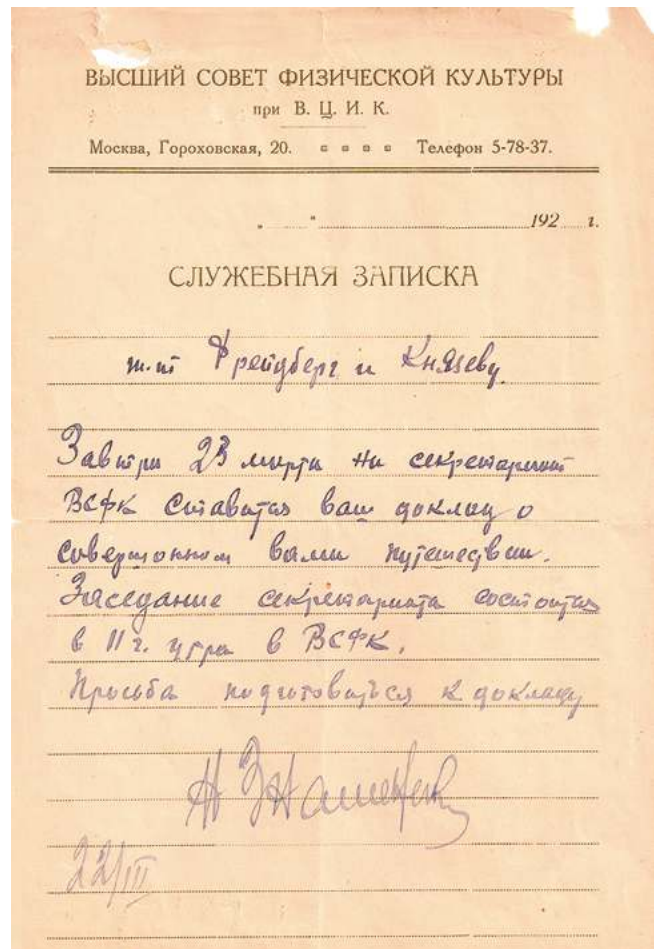 ВЫСШИЙ СОВЕТ ФИЗИЧЕСКОЙ КУЛЬТУРЫ
при В. Ц. И. К.
Москва, Гороховская, 20. Телефон 5-78-37.
„ “ 192 г.
СЛУЖЕБНАЯ ЗАПИСКА
т.т Фрейдберг и Князеву.
Завтра 23 марта на секретариат
ВСФК ставится ваш доклад о
совершонном вами путешествии.
Заседание секретариата состоится
в 11 ч. утра в ВСФК.
Просьба подготовиться к докладу
22/III